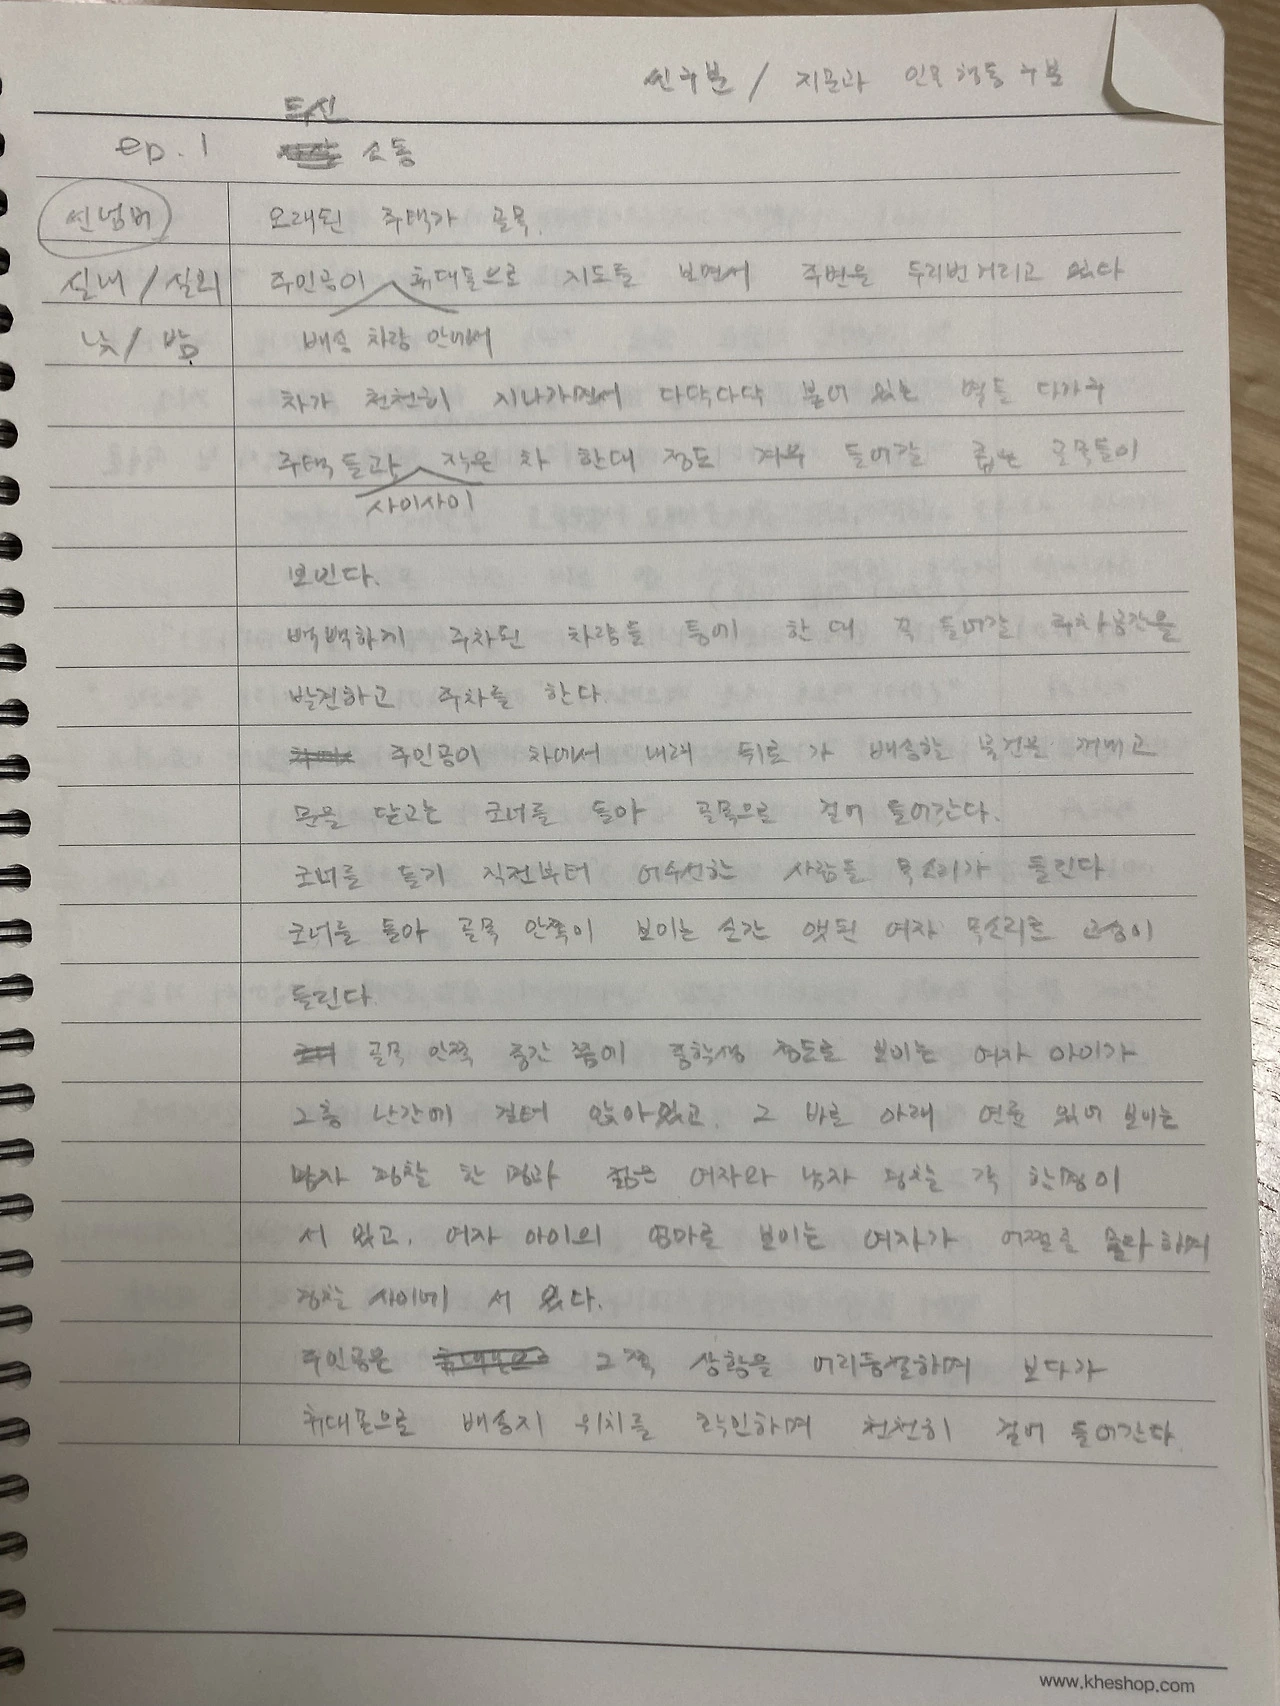 씬구분 / 지문과 인물 행동 구분
ep. 1 소동
씬넘버 오래된 주택가 골목.
실내 / 실외 주인공이 휴대폰으로 지도를 보면서 주변을 두리번거리고 있다
낮 / 밤 배송 차량 안에서
차가 천천히 지나가면서 다닥다닥 붙어 있는 벽돌 다가구
주택들과 작은 차 한대 정도 겨우 들어갈 좁은 골목들이
사이사이
보인다.
빽빽하게 주차된 차량들 틈에 한 대 꼭 들어갈 주차공간을
발견하고 주차를 한다.
주인공이 차에서 내려 뒤로 가 배송할 물건을 꺼내고
문을 닫고는 코너를 돌아 골목으로 걸어 들어간다.
코너를 돌기 직전부터 어수선한 사람들 목소리가 들린다
코너를 돌아 골목 안쪽이 보이는 순간 앳된 여자 목소리로 고성이
들린다.
골목 안쪽 중간 쯤에 중학생 정도로 보이는 여자 아이가
2층 난간에 걸터 앉아있고, 그 바로 아래 연륜 있어 보이는
남자 경찰 한 명과 젊은 여자와 남자 경찰 각 한명이
서 있고, 여자 아이의 엄마로 보이는 여자가 어쩔 줄 몰라 하며
경찰 사이에 서 있다.
주인공은 그쪽 상황을 어리둥절하며 보다가
휴대폰으로 배송지 위치를 확인하며 천천히 걸어 들어간다.
www.kheshop.com